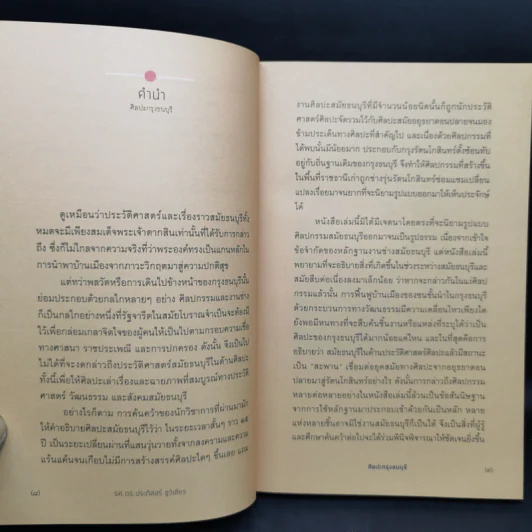 คำนำ
ศิลปะกรุงธนบุรี
ดูเหมือนว่าประวัติศาสตร์และเรื่องราวสมัยธนบุรีทั้ง
หมดจะมีเพียงสมเด็จพระเจ้าตากสินเท่านั้นที่ได้รับการกล่าว
ถึง ซึ่งก็ไม่ไกลจากความจริงที่ว่าพระองค์ทรงเป็นแกนหลักใน
การนำพาบ้านเมืองจากภาวะวิกฤตมาสู่ความปกติสุข
แต่ทว่าพลวัตหรือการเดินไปข้างหน้าของกรุงธนบุรีนั้น
ย่อมประกอบด้วยกลไกหลายๆ อย่าง ศิลปกรรมและงานช่าง
ก็เป็นกลไกอย่างหนึ่งที่รัฐจารีตในสมัยโบราณจำเป็นจะต้องมี
ไว้เพื่อกล่อมเกลาจิตใจของผู้คนให้เป็นไปตามกรอบความเชื่อ
ทางศาสนา ราชประเพณี และการปกครอง ดังนั้น จึงเป็นไป
ไม่ได้ที่จะงดกล่าวถึงประวัติศาสตร์สมัยธนบุรีในด้านศิลปะ
ทั้งนี้เพื่อให้ศิลปะเล่าเรื่องและฉายภาพที่สมบูรณ์ทางประวัติ
ศาสตร์ วัฒนธรรม และสังคมสมัยธนบุรี
อย่างไรก็ตาม การค้นคว้าของนักวิชาการที่ผ่านมามัก
ให้คำอธิบายศิลปะสมัยธนบุรีไว้ว่า ในระยะเวลาสั้นๆ ราว ๑๕
ปี เป็นระยะเปลี่ยนผ่านที่แสนวุ่นวายทั้งจากสงครามและความ
แร้นแค้นจนเกือบไม่มีการสร้างสรรค์ศิลปะใดๆ ขึ้นเลย
(๘) รศ. ดร. ประภัสสร์ ชูวิเชียร
งานศิลปะสมัยธนบุรีที่มีจำนวนน้อยนิดนั้นก็ถูกนักประวัติ
ศาสตร์ศิลปะจัดรวมไว้กับศิลปะสมัยอยุธยาตอนปลายจนมอง
ข้ามประเด็นทางศิลปะที่สำคัญไป และเนื่องด้วยศิลปกรรมที่
ได้พบนั้นมีน้อยมาก ประกอบกับกรุงรัตนโกสินทร์ตั้งซ้อนทับ
อยู่กับถิ่นฐานเดิมของกรุงธนบุรี จึงทำให้ศิลปกรรมที่สร้างขึ้น
ในพื้นที่ราชธานีเก่าถูกช่างรุ่นรัตนโกสินทร์ซ่อมแซมเปลี่ยน
แปลงเรื่อยมาจนยากที่จะนิยามรูปแบบออกมาให้เห็นประจักษ์
ได้
หนังสือเล่มนี้มิได้มีเจตนาโดยตรงที่จะนิยามรูปแบบ
ศิลปกรรมสมัยธนบุรีออกมาจนเป็นรูปธรรม เนื่องจากเข้าใจ
ข้อจำกัดของหลักฐานงานช่างสมัยธนบุรี แต่หนังสือเล่มนี้
พยายามที่จะอธิบายสิ่งที่เกิดขึ้นในช่วงระหว่างสมัยธนบุรีและ
สมัยสืบต่อเนื่องลงมาเล็กน้อย ว่าหากจะกล่าวกันในแง่ศิลป
กรรมแล้วนั้น การฟื้นฟูบ้านเมืองของชนชั้นนำในกรุงธนบุรี
ด้วยกระบวนการทางวัฒนธรรมมีความเคลื่อนไหวเพียงใด
ยังพอมีหนทางที่จะสืบค้นชิ้นงานหรือแหล่งที่ระบุได้ว่าเป็น
ศิลปะของกรุงธนบุรีได้มากน้อยแค่ไหน และในที่สุดคือการ
อธิบายว่า สมัยธนบุรีในด้านประวัติศาสตร์ศิลปะแล้วมีสถานะ
เป็น “สะพาน” เชื่อมต่อยุคสมัยทางศิลปะจากอยุธยาตอน
ปลายมาสู่รัตนโกสินทร์อย่างไร ดังนั้นการกล่าวถึงศิลปกรรม
หลายต่อหลายอย่างในหนังสือเล่มนี้ล้วนเป็นข้อสันนิษฐาน
จากการใช้หลักฐานมาประกอบเข้าด้วยกันเป็นหลัก หลาย
แห่งหลายชิ้นอาจมิใช่งานสมัยธนบุรีก็เป็นได้ จึงเป็นสิ่งที่ผู้รู้
และศึกษาค้นคว้าต่อไปจะได้ร่วมพินิจพิจารณาให้ชัดเจนยิ่งขึ้น
ศิลปะกรุงธนบุรี (๙)